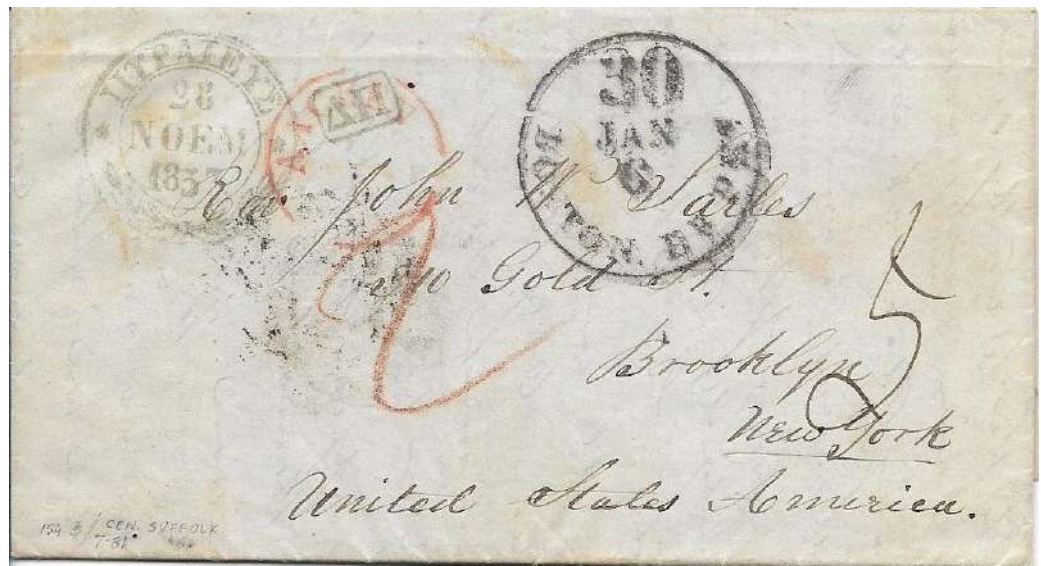 ΠΕΙΡΑΙΕΥΣ
28
ΝΟΕΜ
1857
ΠΔ
30
JAN
6
BOSTON. BR. PKT
2
5
Rev John W Sarles
240 Gold St.
Brooklyn
New York
United States America.
154 CEN. SUFFOLK
7-81